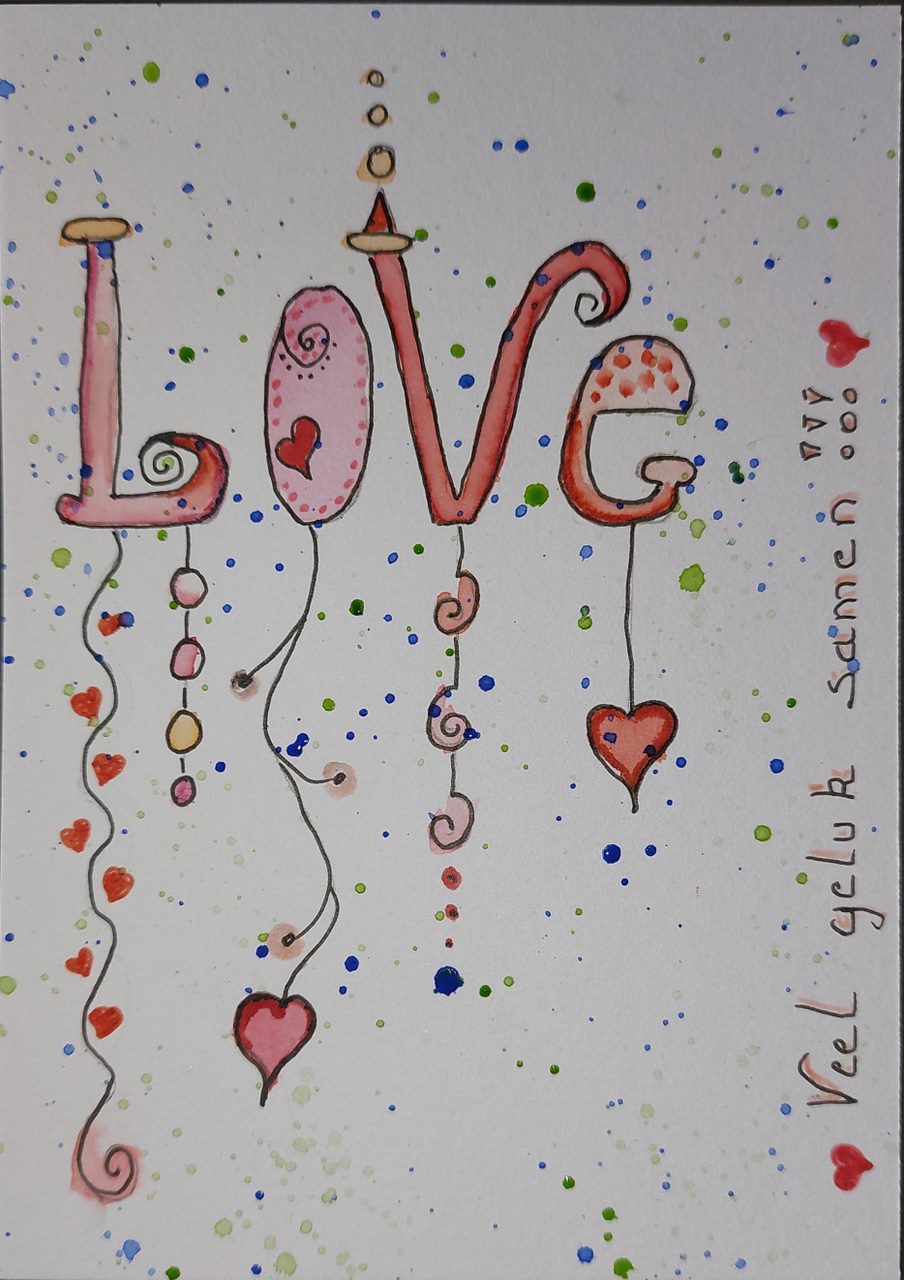 LOVe
Veel geluk samen !!!